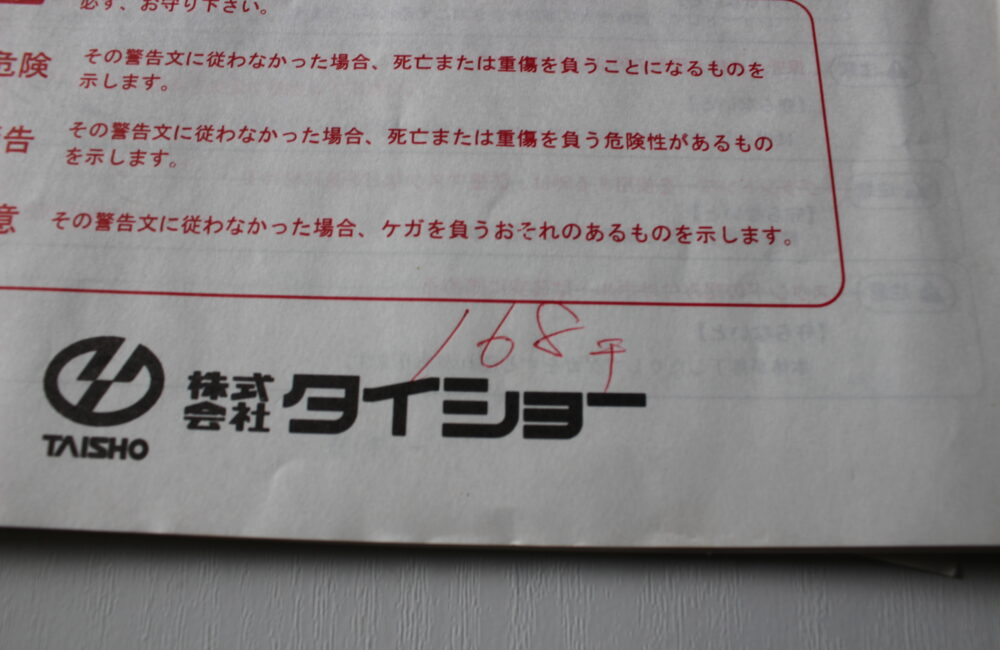 必ず、お守り下さい。
危険 その警告文に従わなかった場合、死亡または重傷を負うことになるものを
示します。
告 その警告文に従わなかった場合、死亡または重傷を負う危険性があるもの
を示します。
意 その警告文に従わなかった場合、ケガを負うおそれのあるものを示します。
168
株式
会社 タイショー
TAISHO